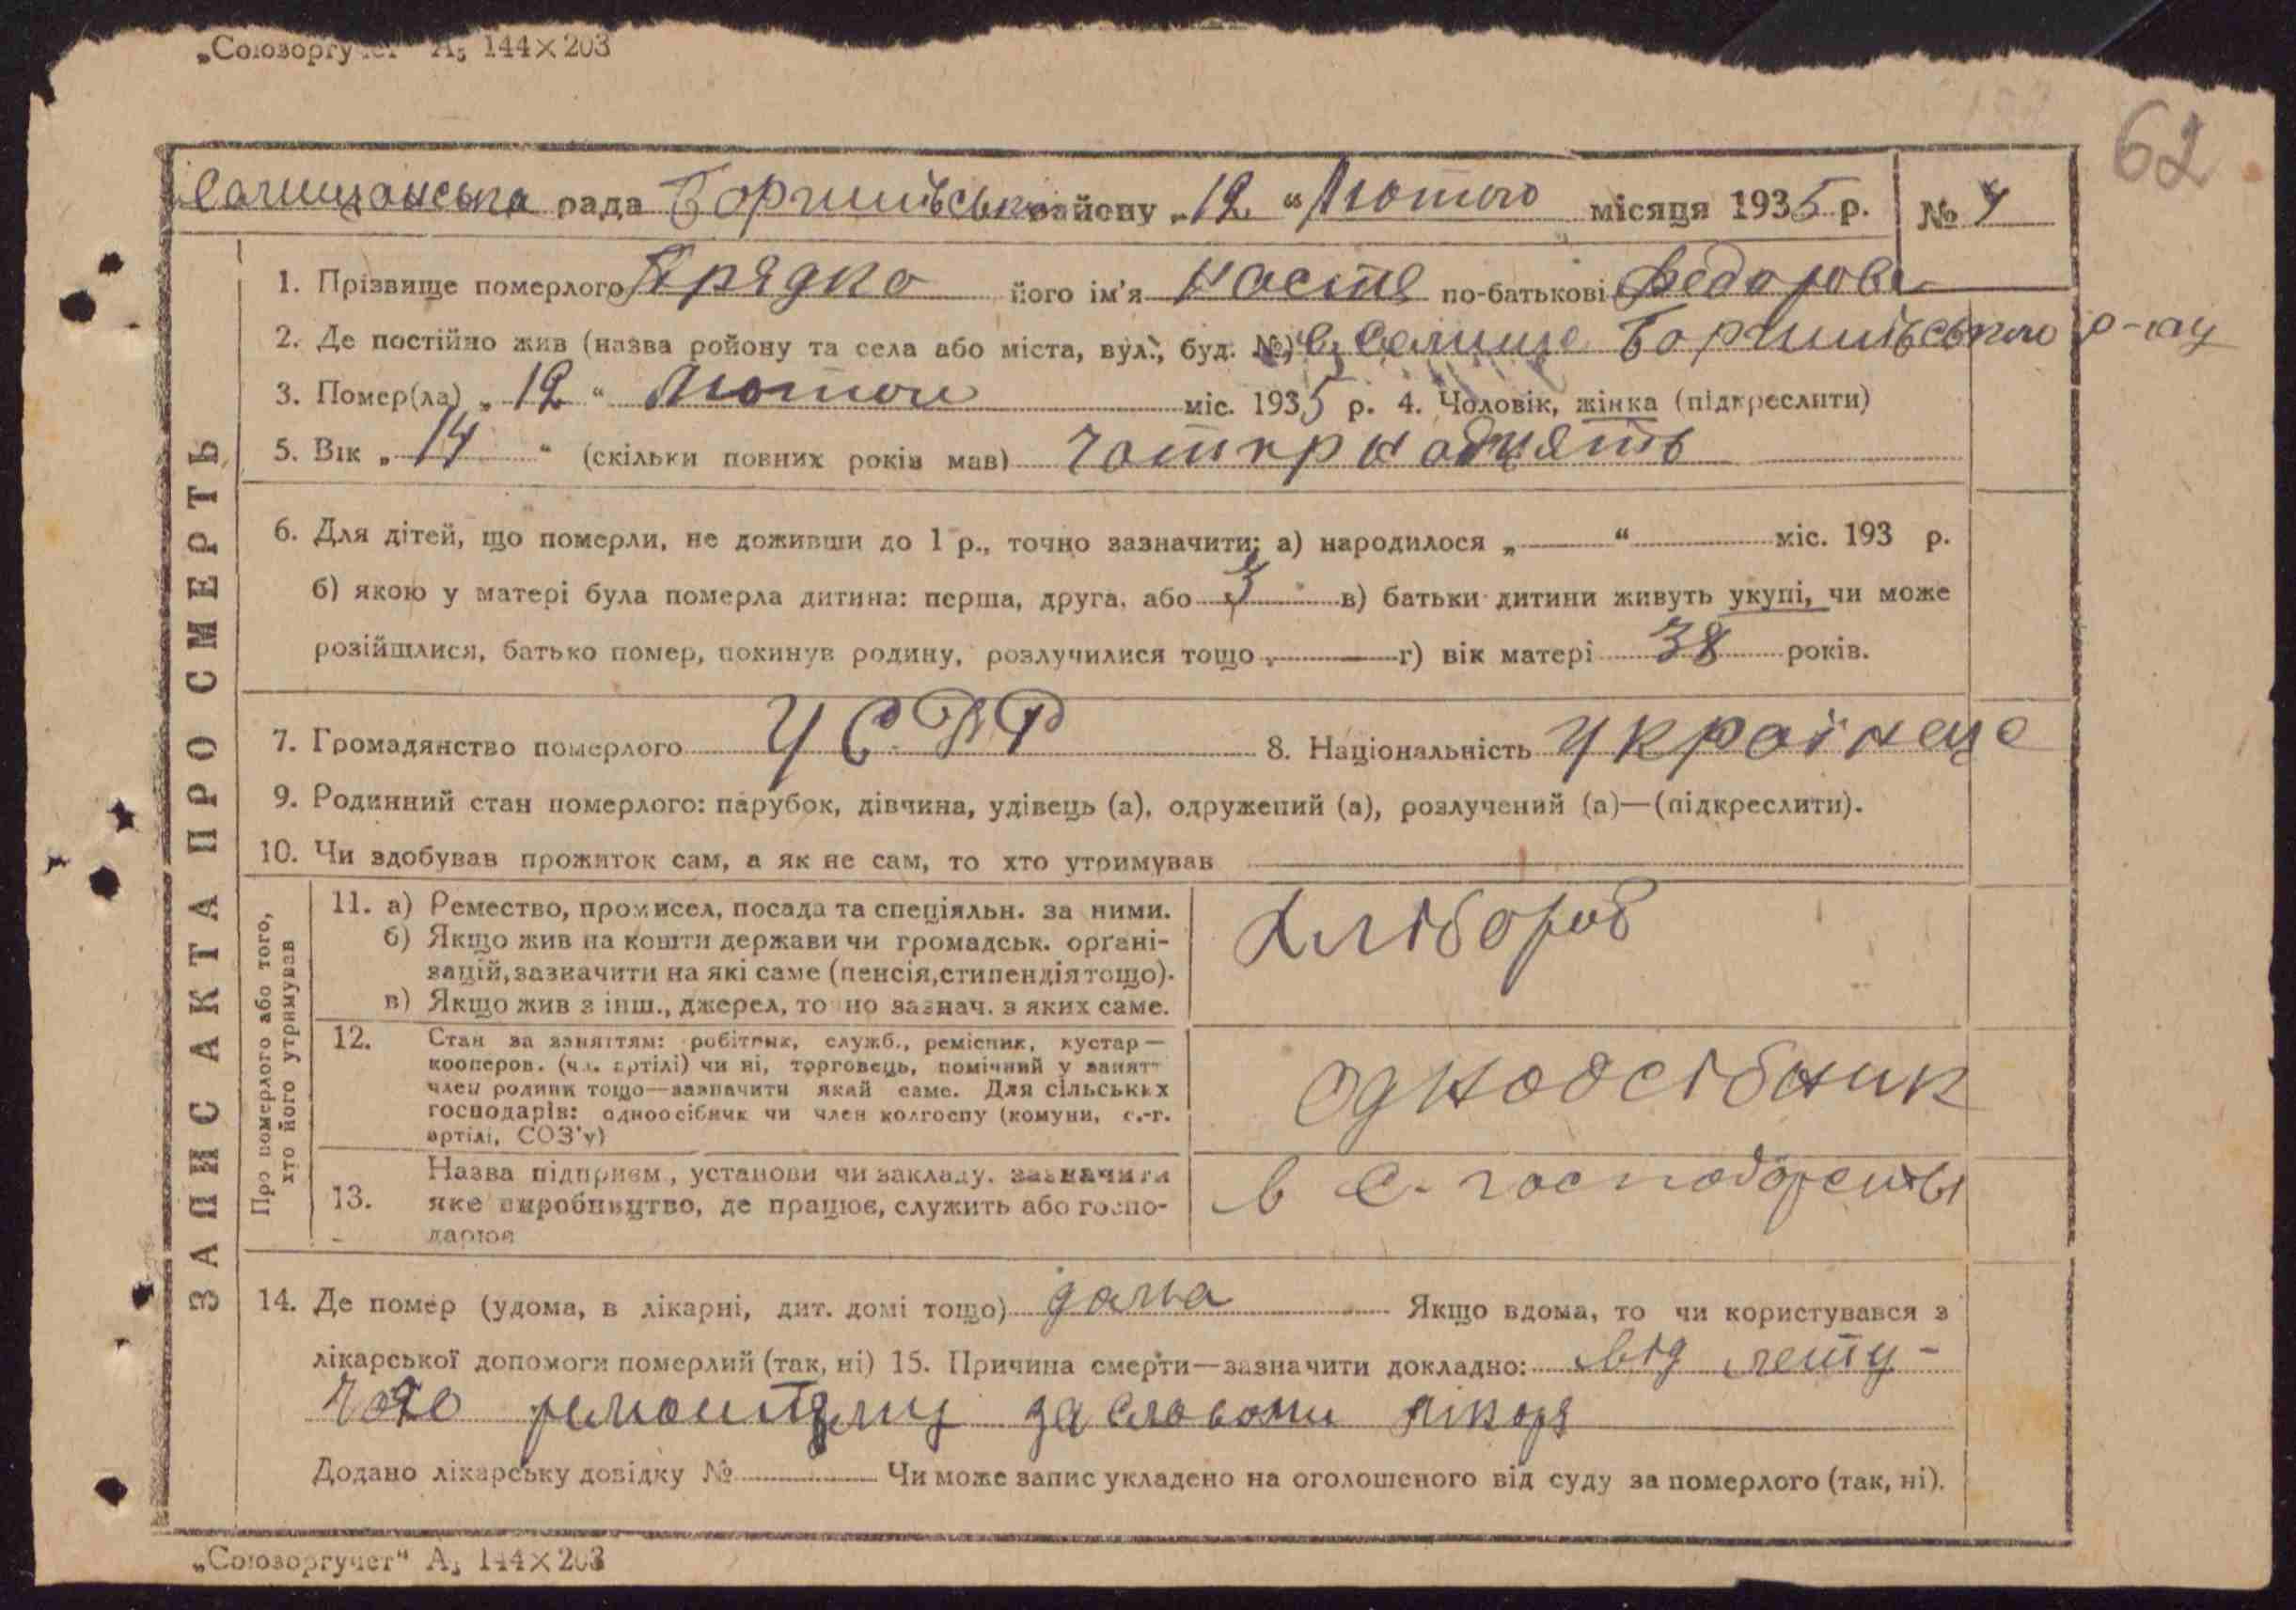 „Союзоргучет“ А₅ 144×203
62
рада району „12“ Лютого місяця 1935 р. № 4
1. Прізвище померлого Прядко його ім'я Настя по-батькові Федорова
2. Де постійно жив (назва ройону та села або міста, вул., буд. №) с. Селище р-ну
3. Помер(ла) „12“ Лютого міс. 1935 р. 4. Чоловік, жінка (підкреслити)
5. Вік „14“ (скільки повних років мав) чотирнадцять
6. Для дітей, що померли, не доживши до 1 р., точно зазначити: а) народилося „ “ міс. 193 р.
б) якою у матері була померла дитина: перша, друга, або 3 в) батьки дитини живуть укупі, чи може
розійшлися, батько помер, покинув родину, розлучилися тощо г) вік матері 38 років.
7. Громадянство померлого УСРР 8. Національність Українець
9. Родинний стан померлого: парубок, дівчина, удівець (а), одружений (а), розлучений (а)—(підкреслити).
10. Чи здобував прожиток сам, а як не сам, то хто утримував
ЗАПИС АКТА ПРО СМЕРТЬ
Про померлого або того,
хто його утримував
11. а) Ремество, промисел, посада та спеціяльн. за ними.
б) Якщо жив на кошти держави чи громадськ. органі-
зацій, зазначити на які саме (пенсія, стипендія тощо).
в) Якщо жив з інш., джерел, то но зазнач. з яких саме.
Хлібороб
12. Стан за заняттям: робітник, служб., ремісник, кустар—
кооперов. (чл. артілі) чи ні, торговець, помічний у занятт
член родини тощо—зазначити який саме. Для сільських
господарів: одноосібник чи член колгоспу (комуни, с.-г.
артілі, СОЗ'у)
одноосібник
13. Назва підприєм., установи чи закладу, зазначити
яке виробництво, де працює, служить або госпо-
дарює
в с. господарстві
14. Де помер (удома, в лікарні, дит. домі тощо) дома Якщо вдома, то чи користувався з
лікарської допомоги померлий (так, ні) 15. Причина смерти—зазначити докладно: від
за словами лікаря
Додано лікарську довідку № Чи може запис укладено на оголошеного від суду за померлого (так, ні).
„Союзоргучет“ А₅ 144×203